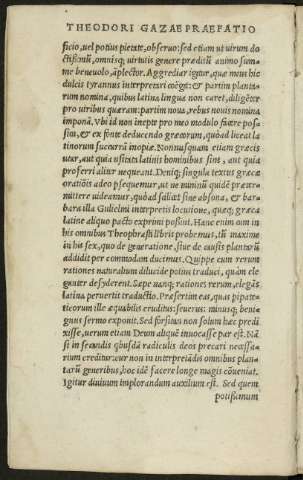 THEODORI GAZAE PRAEFATIO
ficio, uel potius pietate, obseruo: sed etiam ut uirum do
ctissimũ, omnisq; uirtutis genere præditũ animo sum-
me beneuolo, aplector. Aggrediar igitur, quæ meus hic
dulcis tyrannus interpretari coëgit: & partim planta-
rum nomina, quibus latina lingua non caret, diligẽter
pro uiribus quæram: partim noua, rebus nouis nomina
imponã. Vbi id non inepte pro meo modulo facere pos
sim, & ex fonte deducendo græcorum, quoad liceat la
tinorum succurrã inopiæ. Nonnusquam etiam græcis
utar, aut quia usitatis latinis hominibus sint, aut quia
proferri aliter nequeant. Deniq; singula textus græcæ
orationis adeo prosequemur, ut ne minimũ quidẽ præter
mittere uideamur, quoad saluare sine absona, & bar
bara illa Gulielmi interpretis locutione, quæq; græca
latine aliquo pacto exprimi possint. Hanc enim cum in
his omnibus Theophrasti libris probemus, tũ maxime
in his sex, quos de generatione, siue de causis plantarũ
addidit per commodum ducimus. Quippe cum rerum
rationes naturalium dilucide potius traduci, quàm ele
ganter desyderent. Sæpe nanq; rationes rerum, elegãs
latina peruertit traductio. Præsertim eas, quas pipate-
ticorum ille æquabilis eruditus: seuerus: minusq; beni-
gnus sermo exponit. Sed forsitan non solum hæc prædi
xisse, uerum etiam Deum aliquẽ inuocasse par est. Nã
si in secandis quibusdã radiculis deos precari necessa-
rium creditur: cur non in interpretãdis omnibus plan-
tarũ generibus, hoc idẽ facere longe magis cõueniat.
Igitur diuinum implorandum auxilium est. Sed quem
potissimum